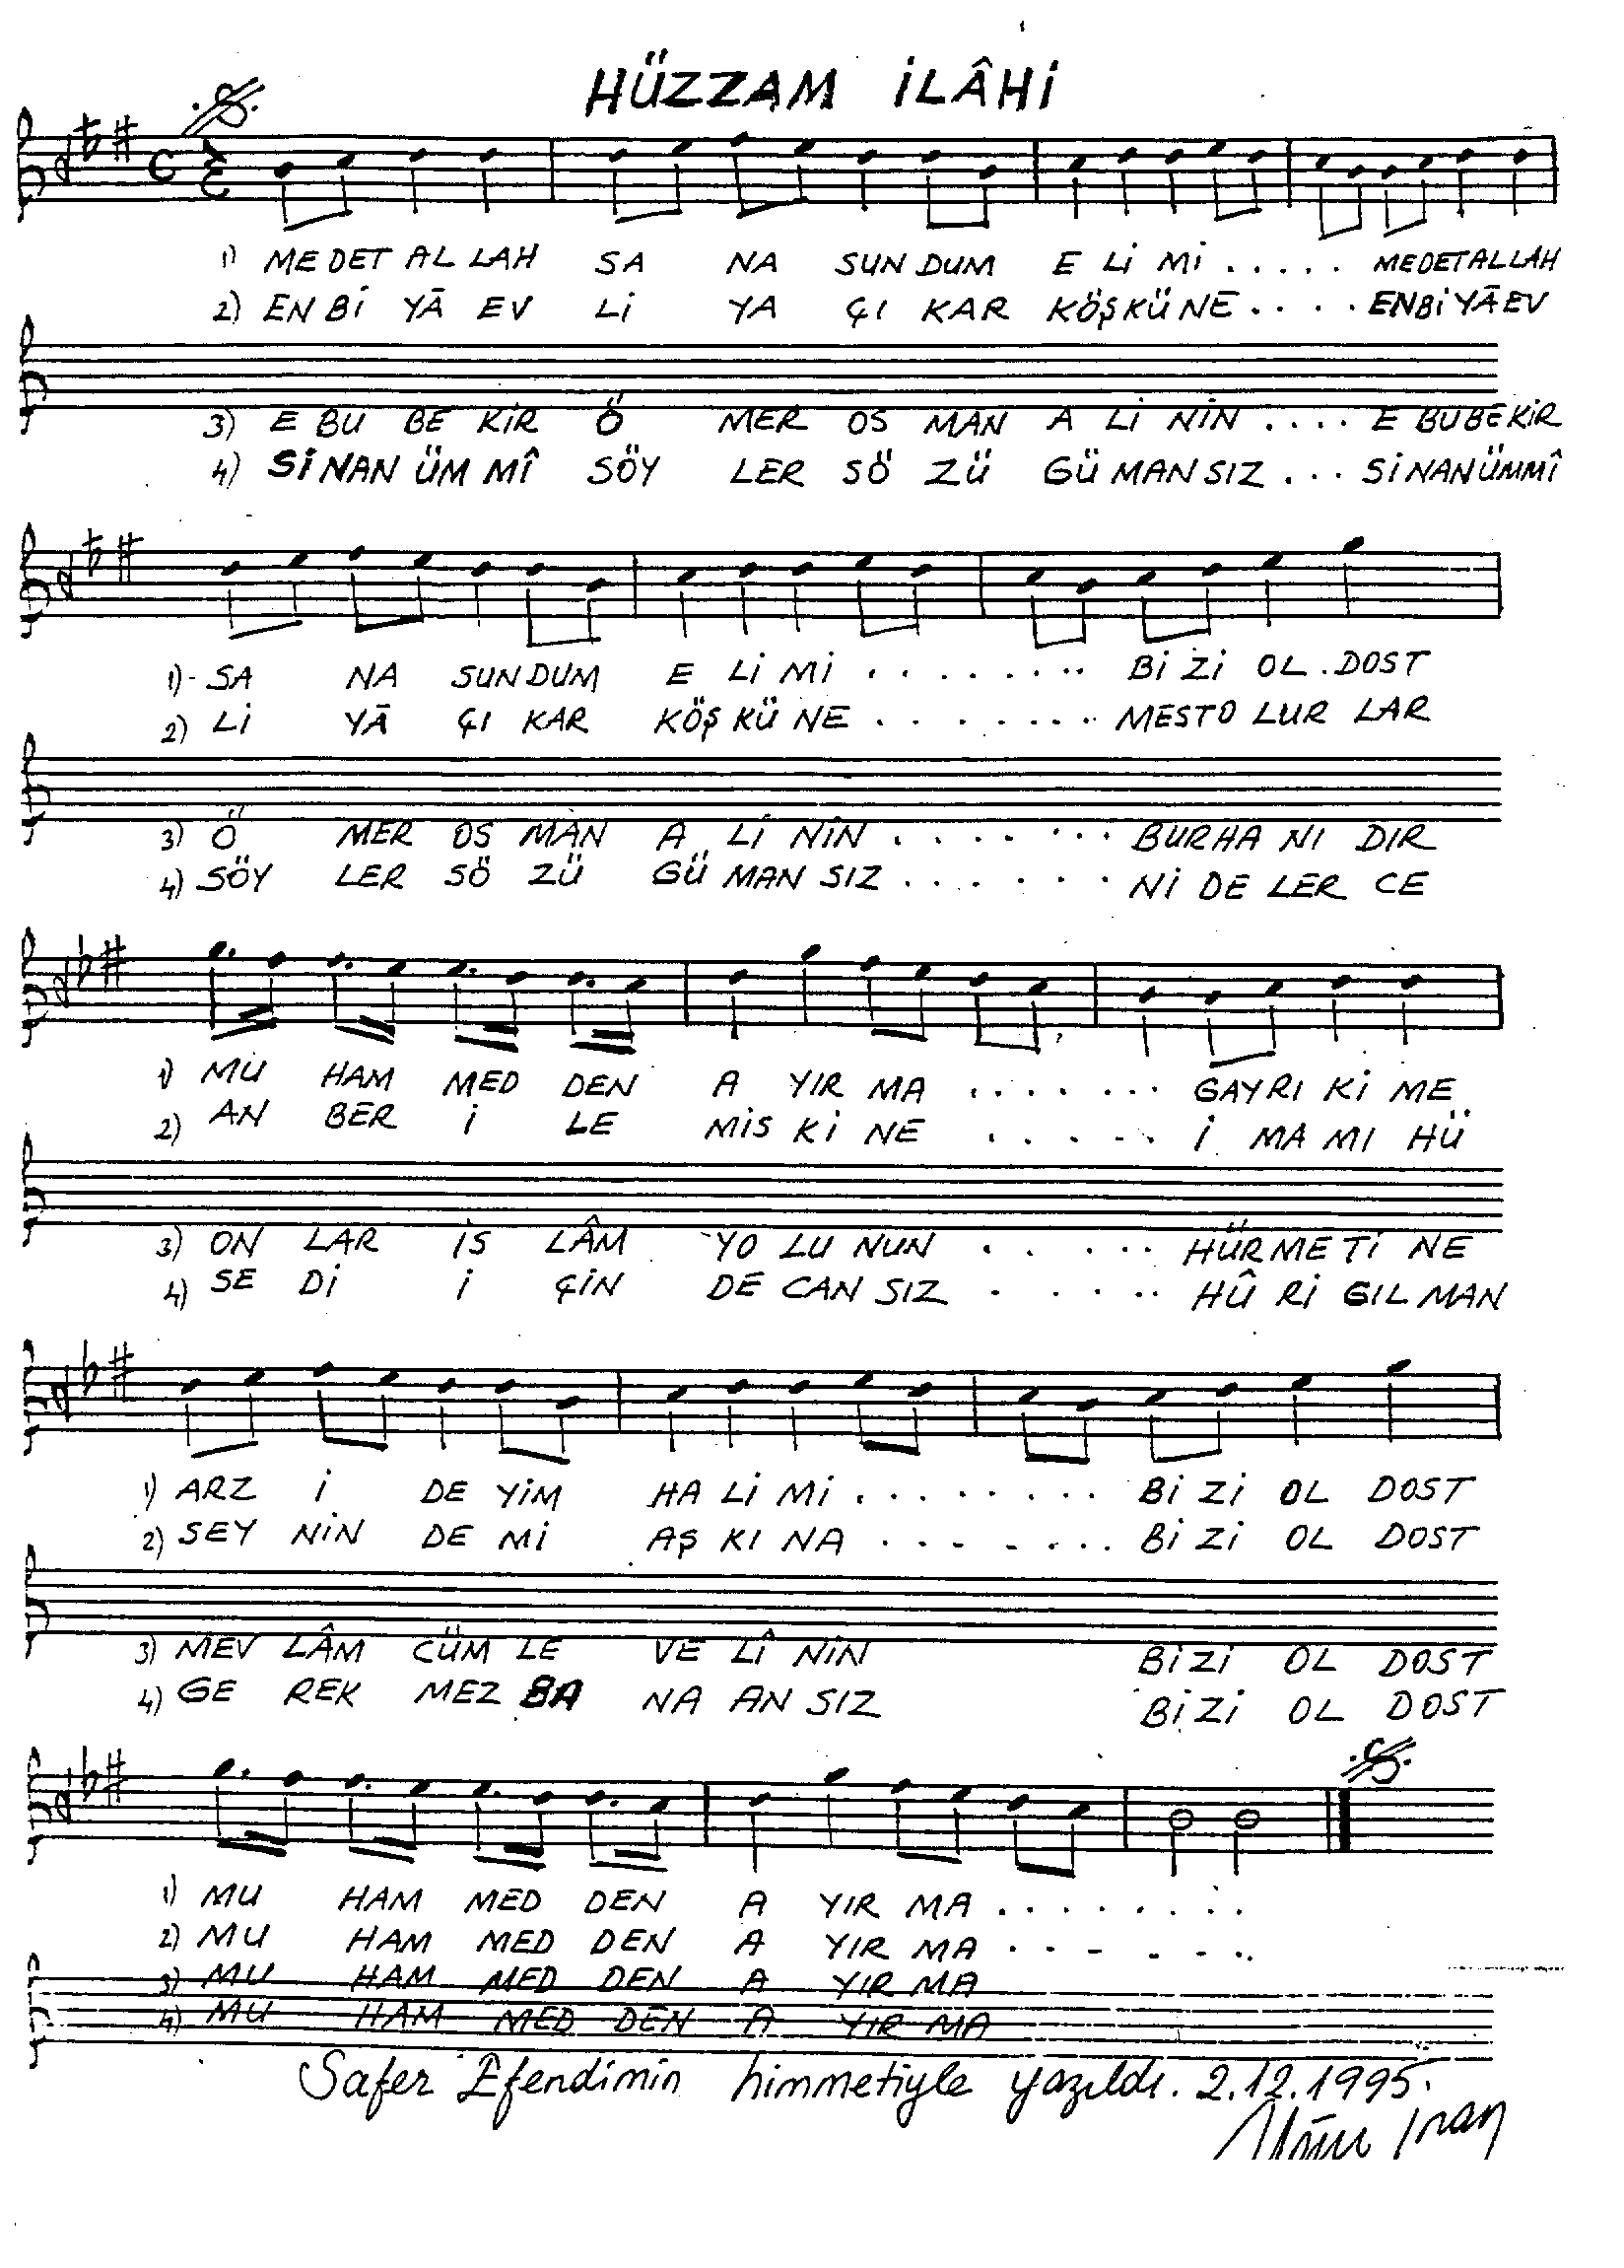 HÜZZAM İLÂHİ
1) MEDET ALLAH SA NA SUNDUM E Lİ Mİ ..... MEDETALLAH
2) ENBİ YĀ EV Lİ YA ÇI KAR KÖŞKÜNE .... ENBİYĀEV
3) E BU BE KİR Ö MER OS MAN A Lİ NİN .... E BUBEKİR
4) SİNAN ÜM MÎ SÖY LER SÖ ZÜ GÜ MANSIZ ... SİNANÜMMÎ
1) SA NA SUNDUM E Lİ Mİ ........ Bİ Zİ OL DOST
2) Lİ YĀ ÇI KAR KÖŞ KÜ NE ........ MESTO LUR LAR
3) Ö MER OS MAN A Lİ NİN ........ BURHA NI DIR
4) SÖY LER SÖ ZÜ GÜ MAN SIZ ....... Nİ DE LER CE
1) MU HAM MED DEN A YIR MA ....... GAYRI Kİ ME
2) AN BER İ LE MİS Kİ NE ...... İ MA MI HÜ
3) ON LAR İS LÂM YO LU NUN ..... HÜRMETİ NE
4) SE Dİ İ ÇİN DE CAN SIZ ..... HÛ Rİ GILMAN
1) ARZ İ DE YİM HA Lİ Mİ ........ Bİ Zİ OL DOST
2) SEY NİN DE Mİ AŞ KI NA ........ Bİ Zİ OL DOST
3) MEV LÂM CÜM LE VE LÎ NİN Bİ Zİ OL DOST
4) GE REK MEZ BA NA AN SIZ Bİ Zİ OL DOST
1) MU HAM MED DEN A YIR MA ........
2) MU HAM MED DEN A YIR MA ........
3) MU HAM MED DEN A YIR MA
4) MU HAM MED DEN A YIR MA
Safer Efendimin himmetiyle yazıldı. 2.12.1995.